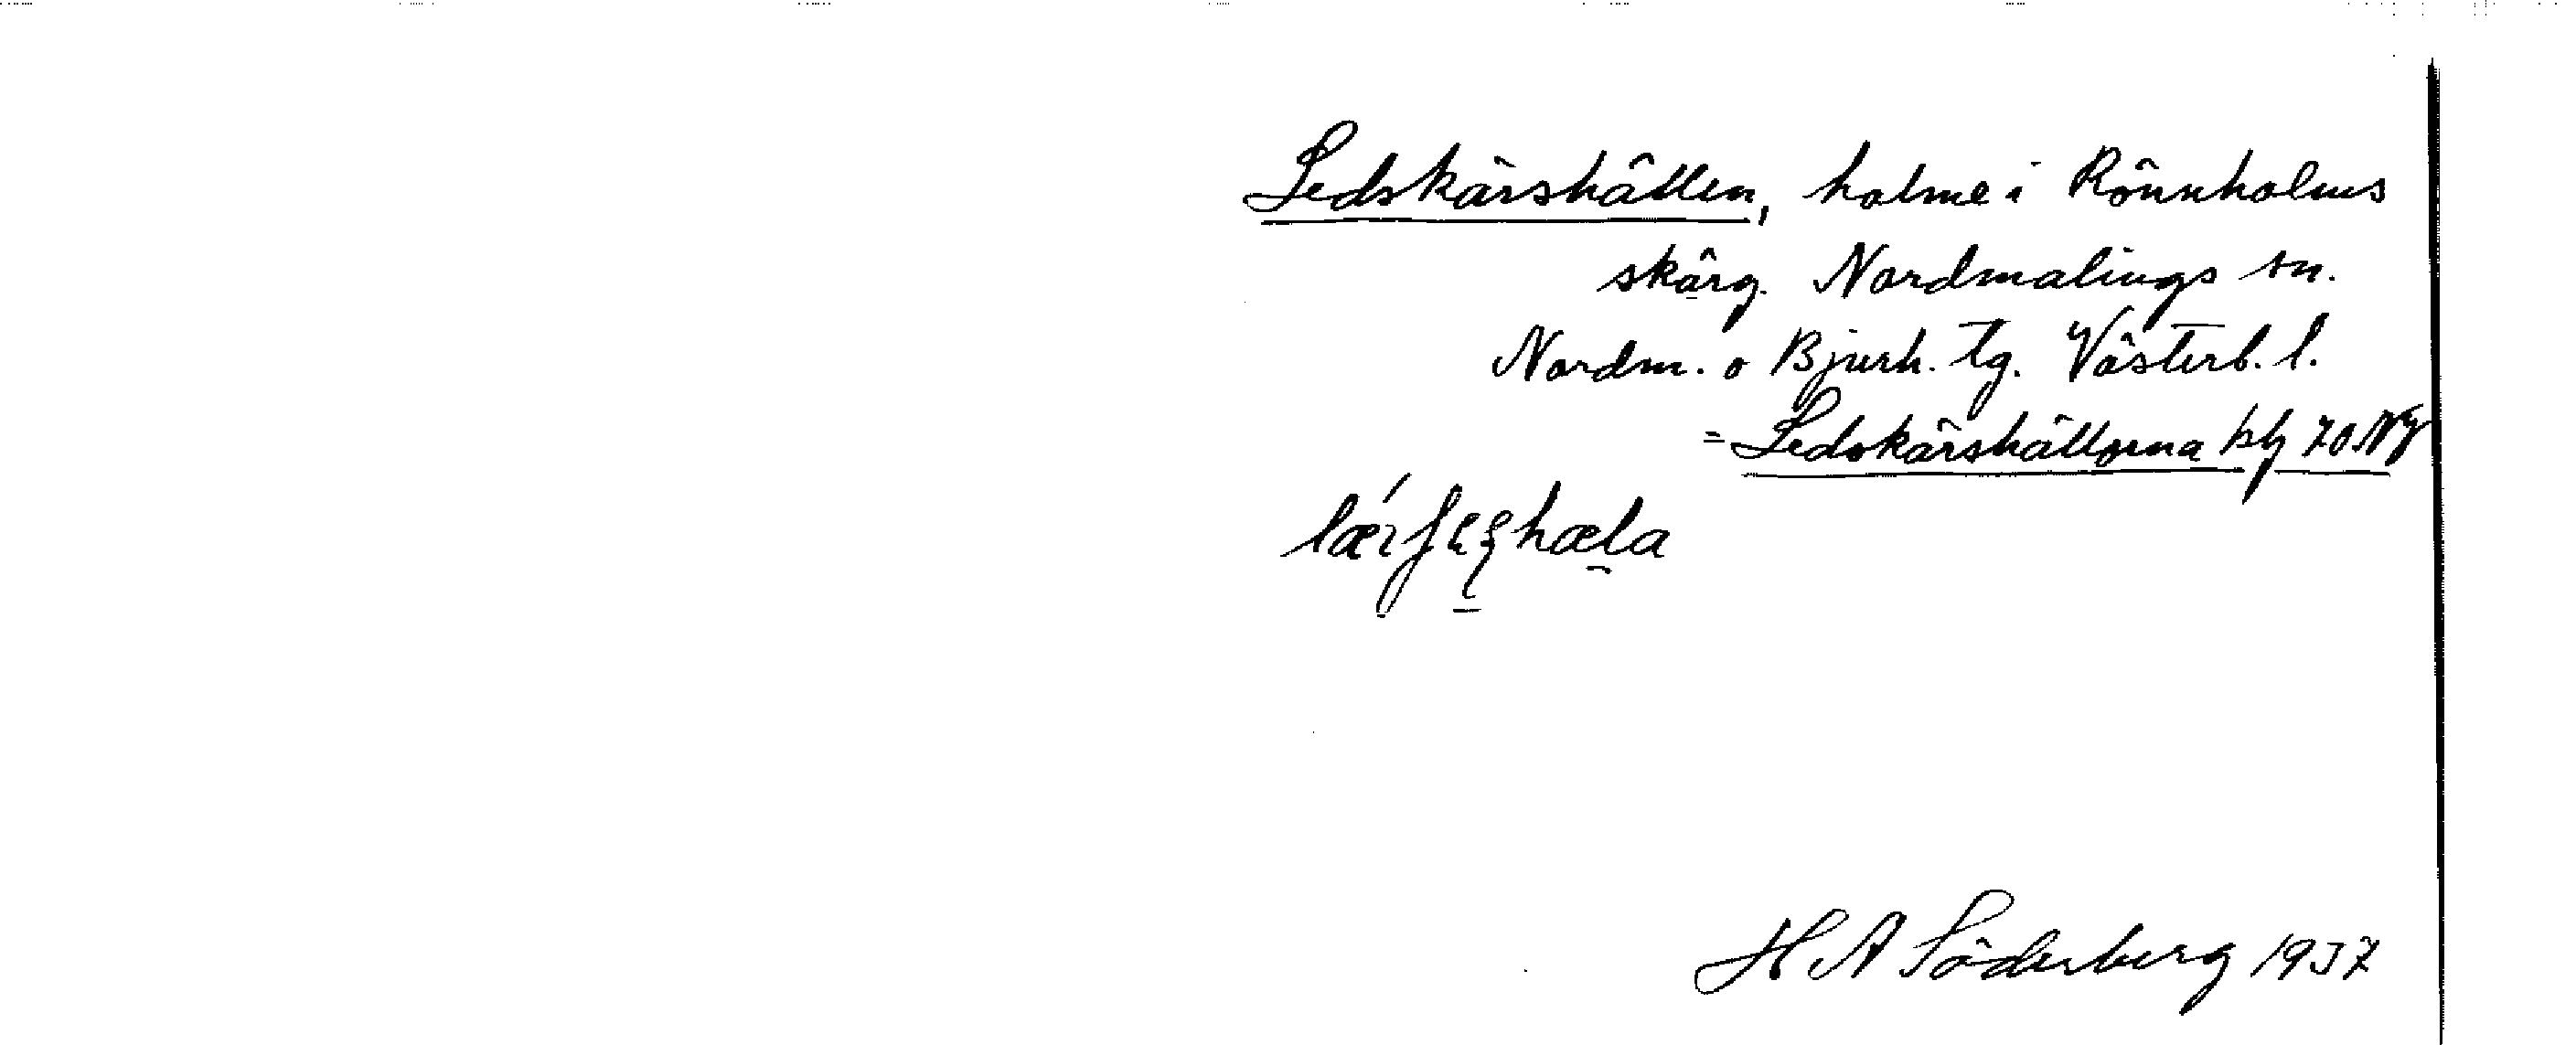 Ledskärshällen, holme i Rönnholms
skärg. Nordmalings sn.
Nordm. o Bjurh. tg. Västerb. l.
= Ledskärshällorna bl 70 NV
H A Söderberg 1937